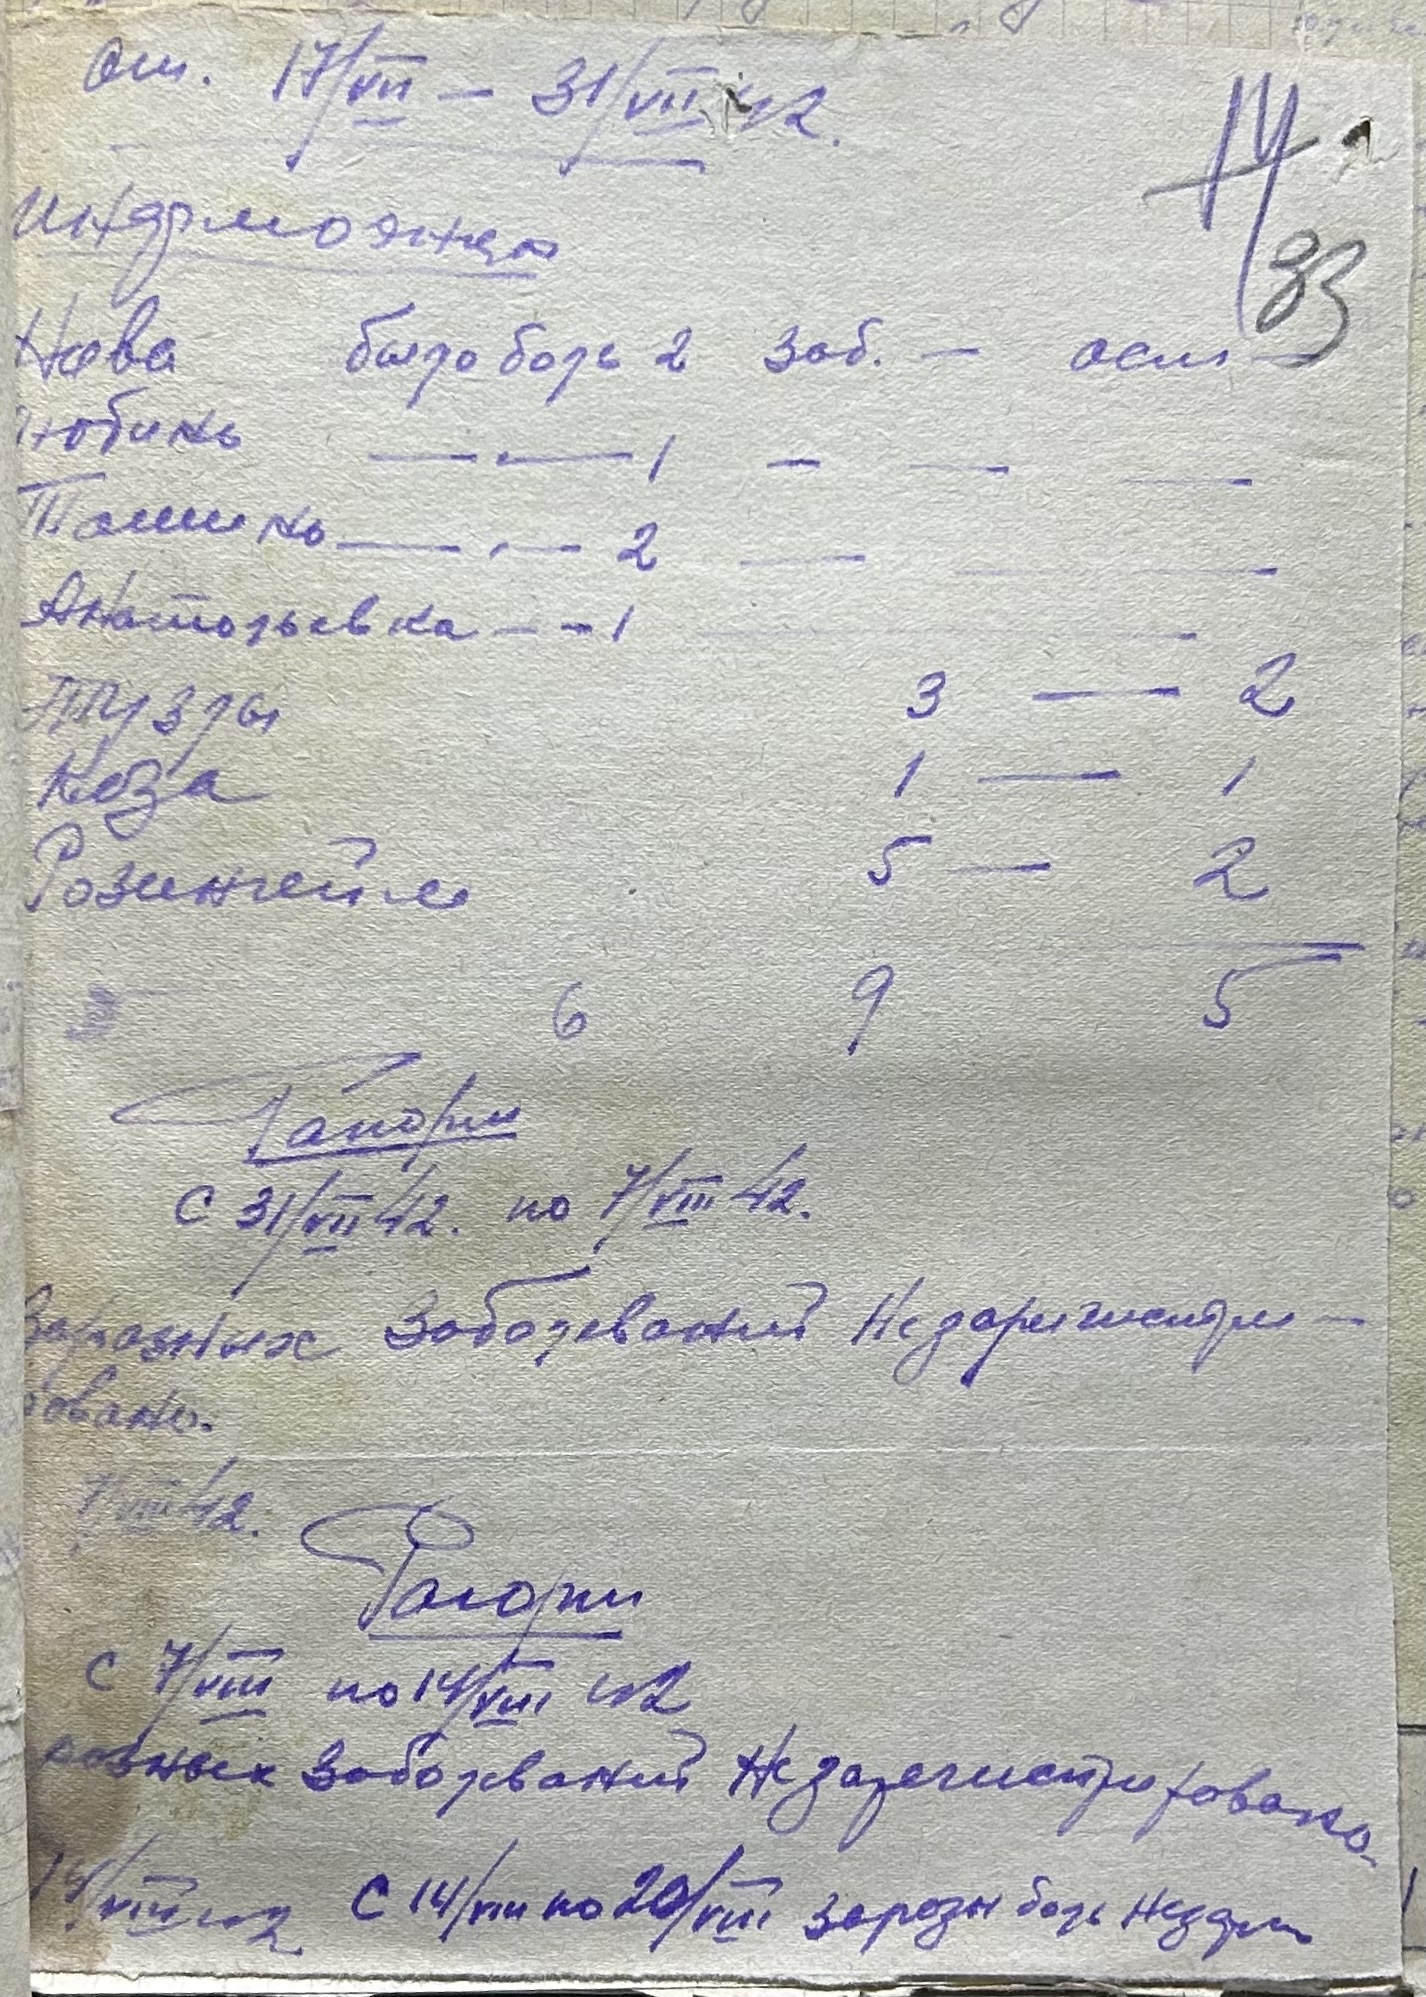 От. 17/VII — 31/VII 42.
14
83
Нова было боль 2 заб. — осл
Любинь — " — 1 — — —
Ташинь — " — 2 — — —
Анатольевка — - 1 —
Тузлы 3 — 2
Коза 1 — 1
Розингейм 5 — 2
6 9 5
Рапорт
С 31/VII 42. по 7/VIII 42.
Заразных заболеваний не заригистри-
ровано.
7/VIII 42.
Рапорт
С 7/VIII по 14/VIII 42
разных заболеваний не зарегистрировано.
14/VIII 42 С 14/VIII по 20/VIII заразн боль не зари